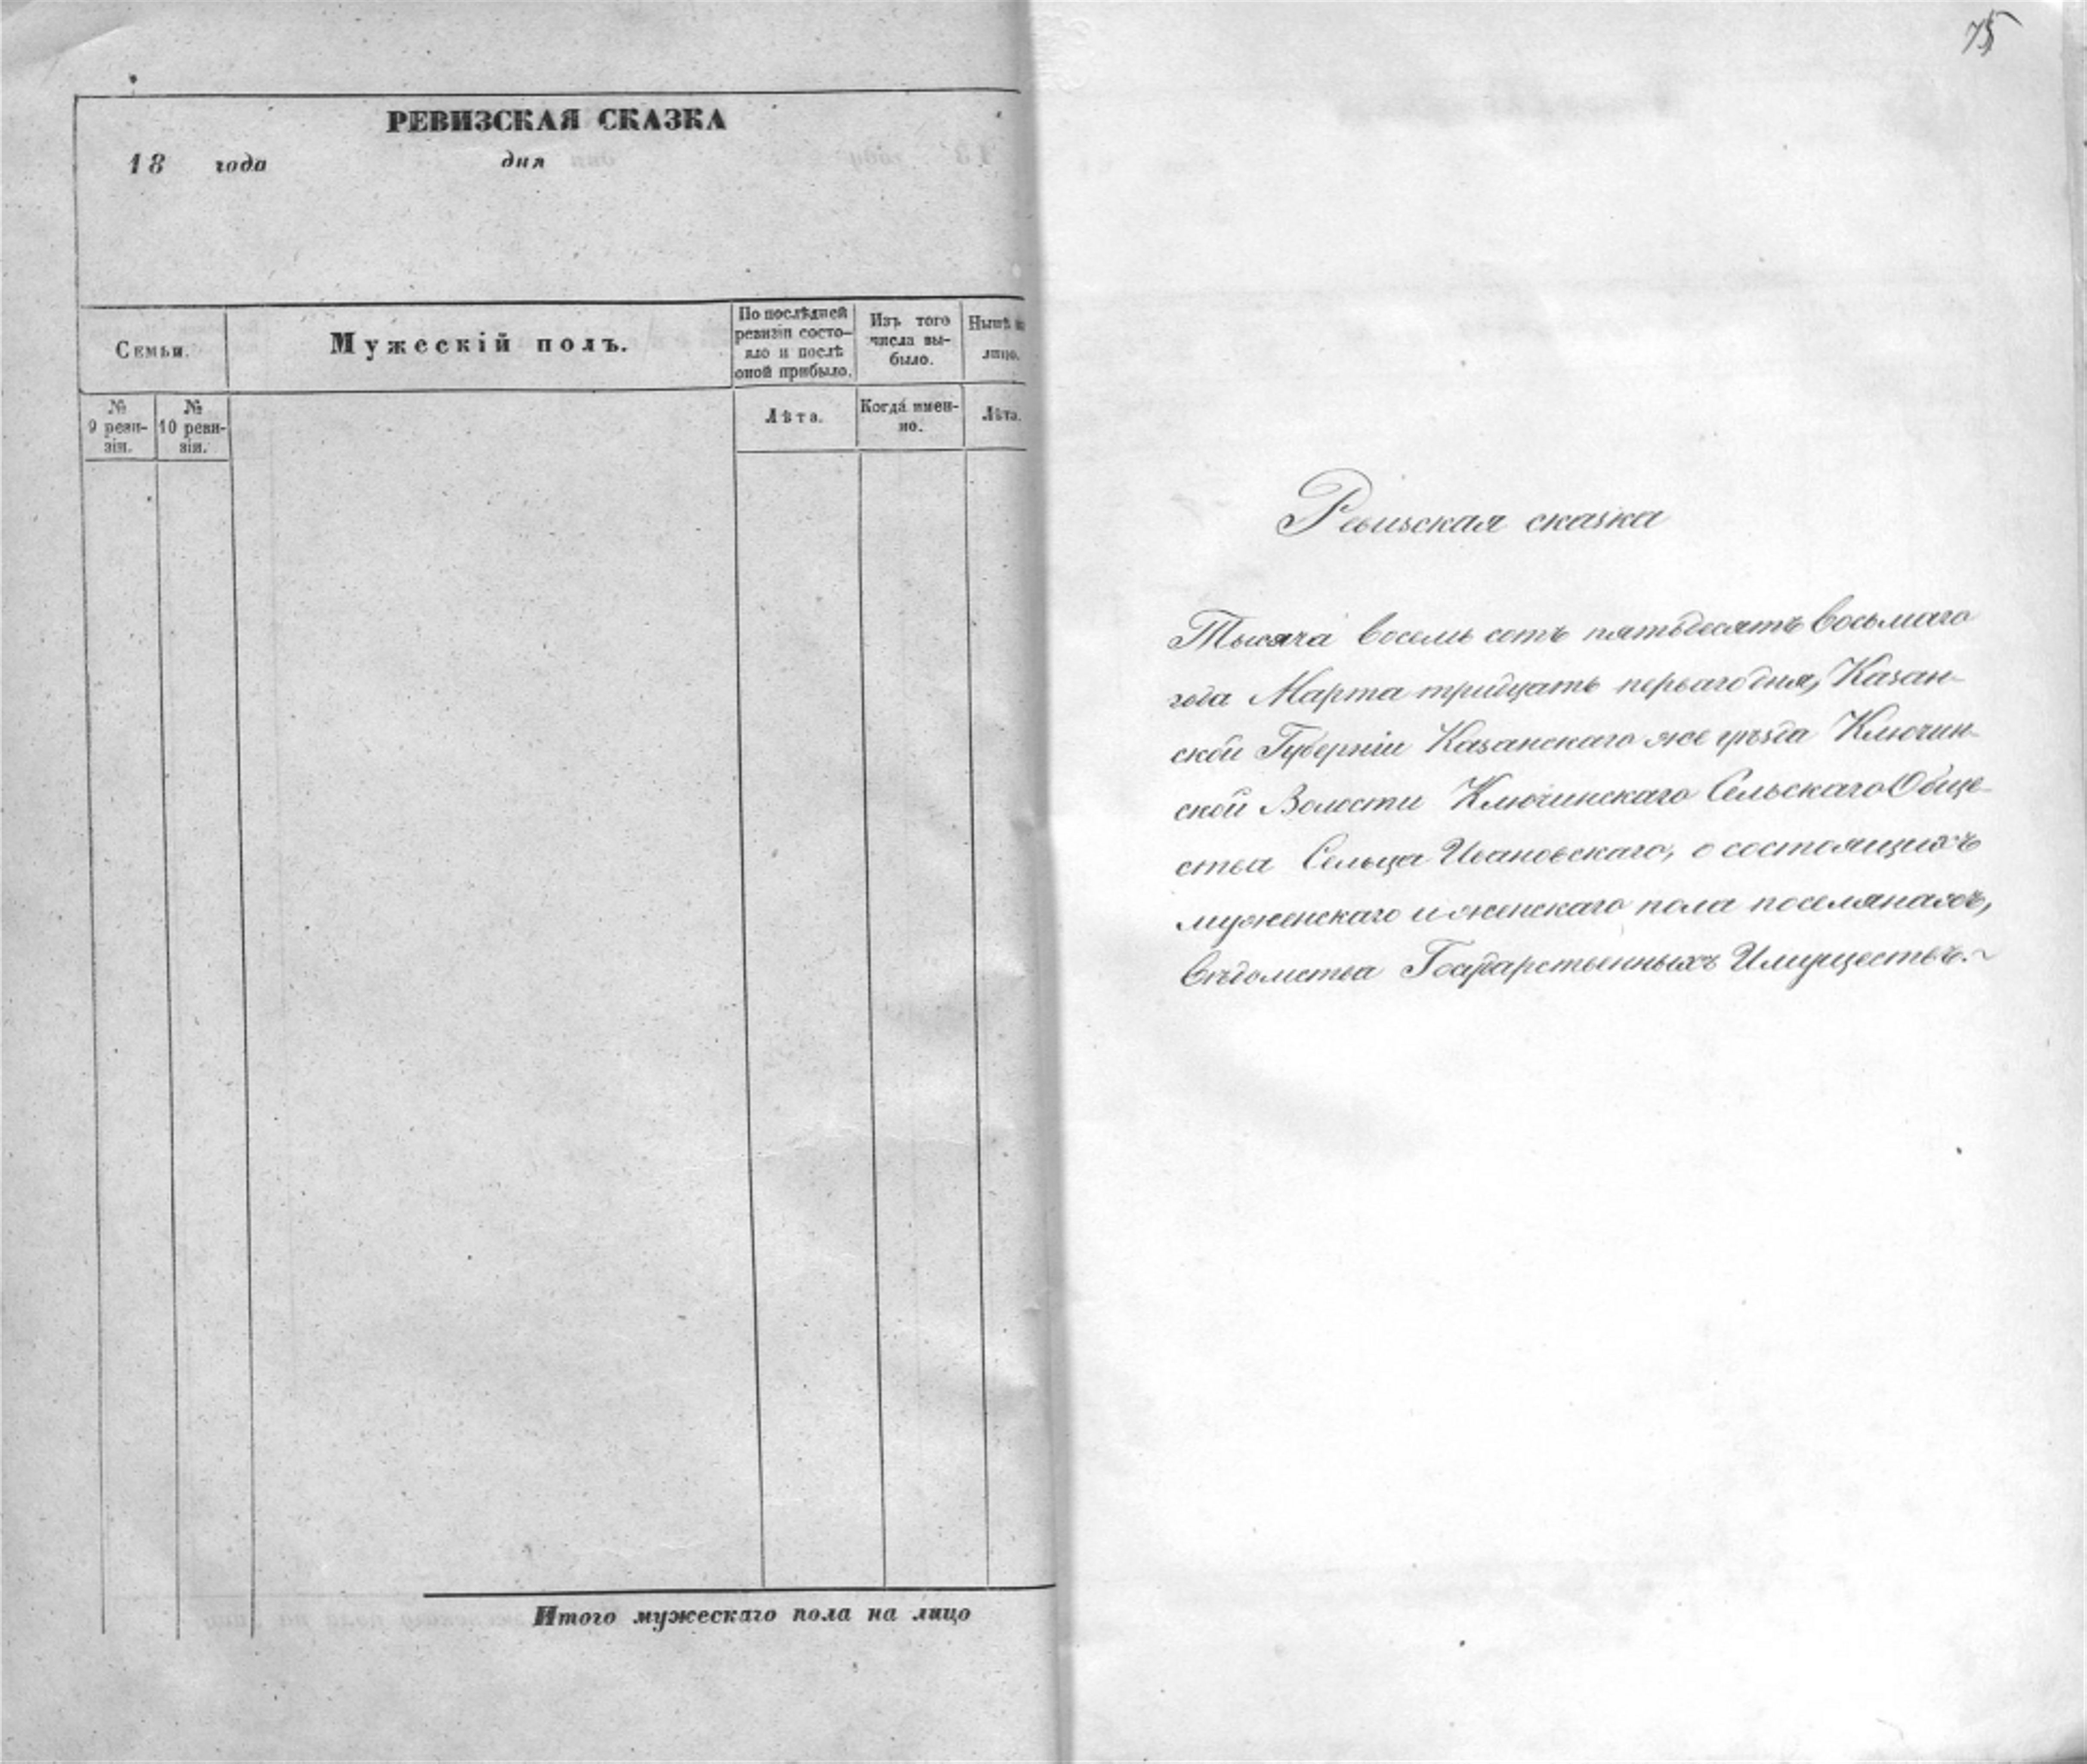 РЕВИЗСКАЯ СКАЗКА
18 года дня
Семьи.
Мужескій полъ.
По послѣдней
ревизіи состо-
яло и послѣ
оной прибыло.
Изъ того
числа вы-
было.
Нынѣ на
лицо.
№
9 реви-
зіи.
№
10 реви-
зіи.
Лѣта.
Когда имен-
но.
Лѣта.
Итого мужескаго пола на лицо
75
Ревизская сказка
Тысяча восемь сотъ пятьдесятъ восьмаго
года Марта тридцать перваго дня, Казан-
ской Губерніи Казанскаго же уѣзда Ключин-
ской Волости Ключинскаго Сельскаго Обще-
ства Сельца Ивановскаго, о состоящихъ
мужескаго и женскаго пола поселянахъ,
вѣдомства Государственныхъ Имуществъ.